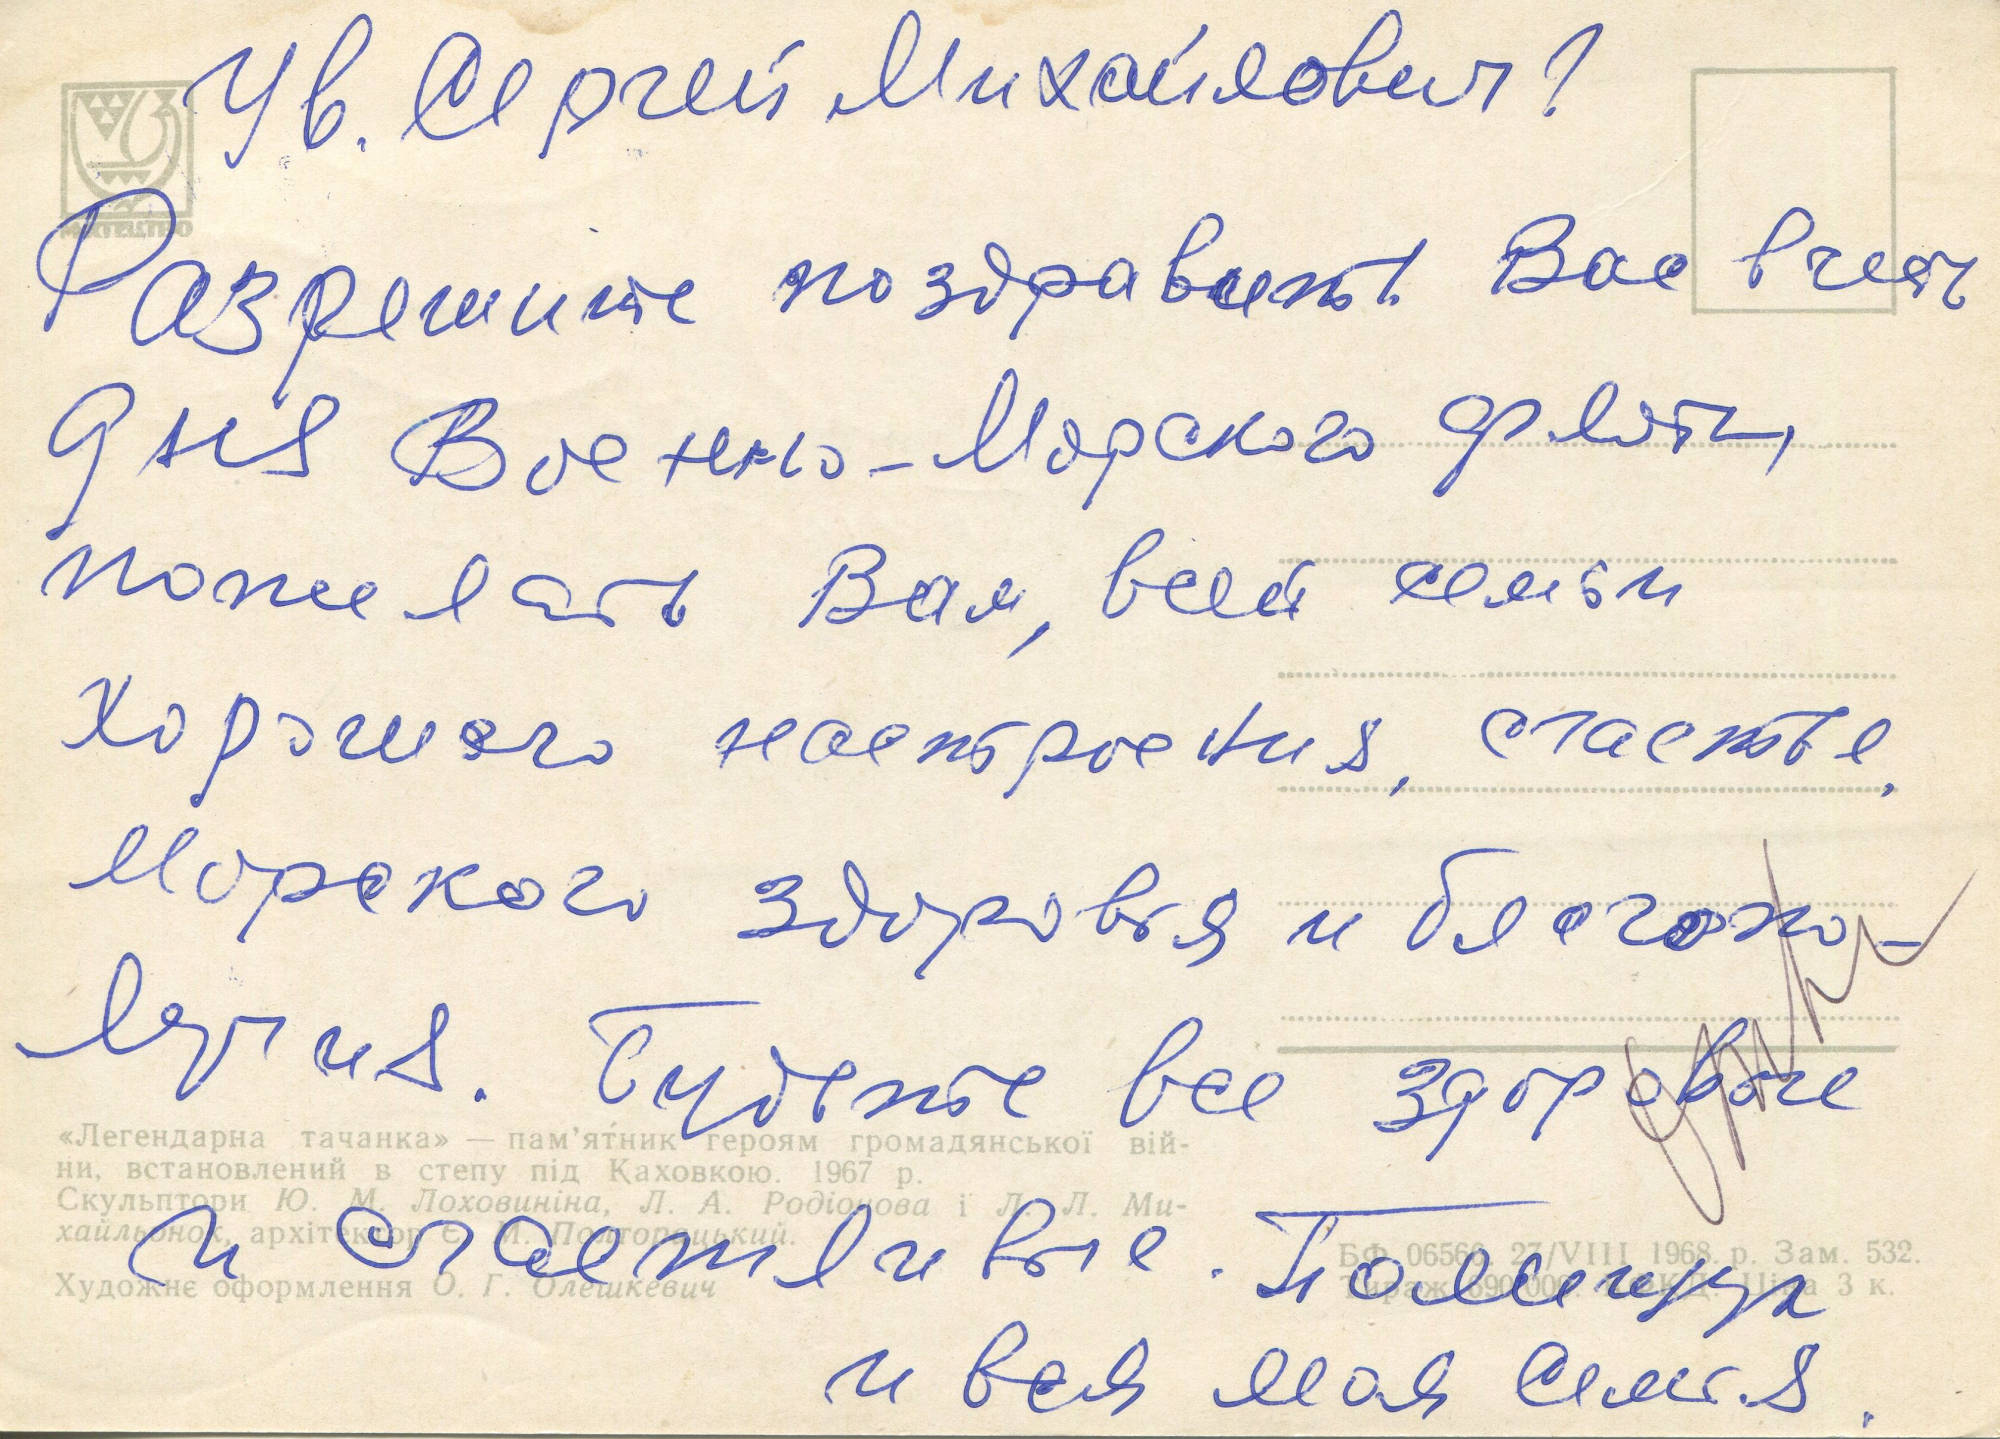 Ув. Сергей Михайлович!
Разрешите поздравить Вас в честь
дня Военно-Морского флота,
пожелать Вам, всей семьи
хорошего настроения, счастье,
Морского здоровья и благопо-
лучия. Будьте все здоровые
и счастливые. Полищук
и вся моя семья.
МИСТЕЦТВО
«Легендарна тачанка» — пам'ятник героям громадянської вій-
ни, встановлений в степу під Каховкою. 1967 р.
Скульптори Ю. М. Лоховиніна, Л. А. Родіонова і Л. Л. Ми-
хайльонок, архітектор Є. М. Полторацький.
Художнє оформлення О. Г. Олешкевич
БФ 06566. 27/VIII 1968 р. Зам. 532.
Тираж 690 000. Ціна 3 к.